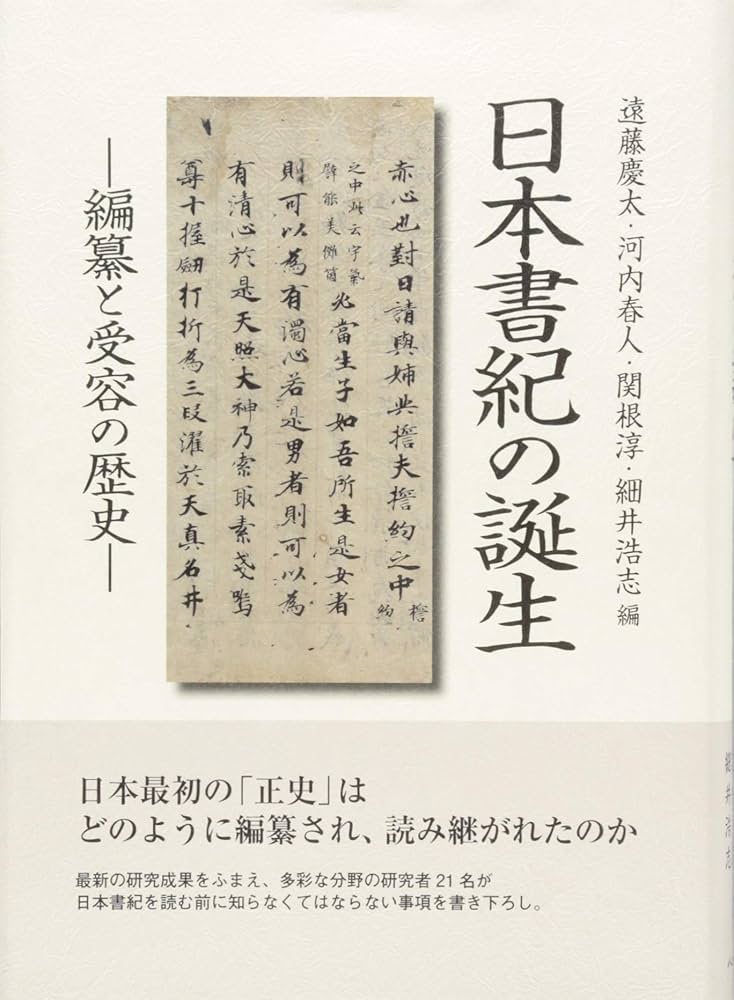 遠藤慶太・河内春人・関根淳・細井浩志 編
日本書紀の誕生
赤心也對曰請與姉共誓夫誓約之中誓約
之中此云宇氣
譬能美儺箇
必當生子如吾所生是女者
則可以為有濁心若是男者則可以為
有清心於是天照大神乃索取素戔嗚
尊十握劒打折為三段濯於天真名井
―編纂と受容の歴史―
日本最初の「正史」は
どのように編纂され、読み継がれたのか
最新の研究成果をふまえ、多彩な分野の研究者21名が
日本書紀を読む前に知らなくてはならない事項を書き下ろし。
細井浩志